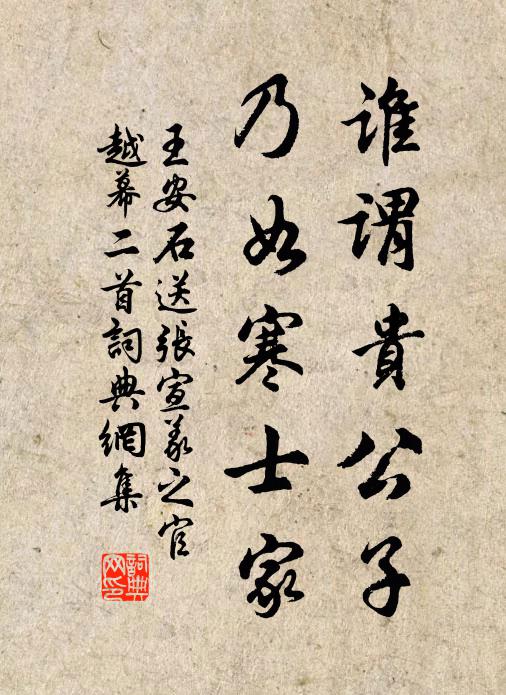 誰謂貴公子
乃如寒士家
王安石送張宣義之官
越幕二首詞典網集
詞典
网印